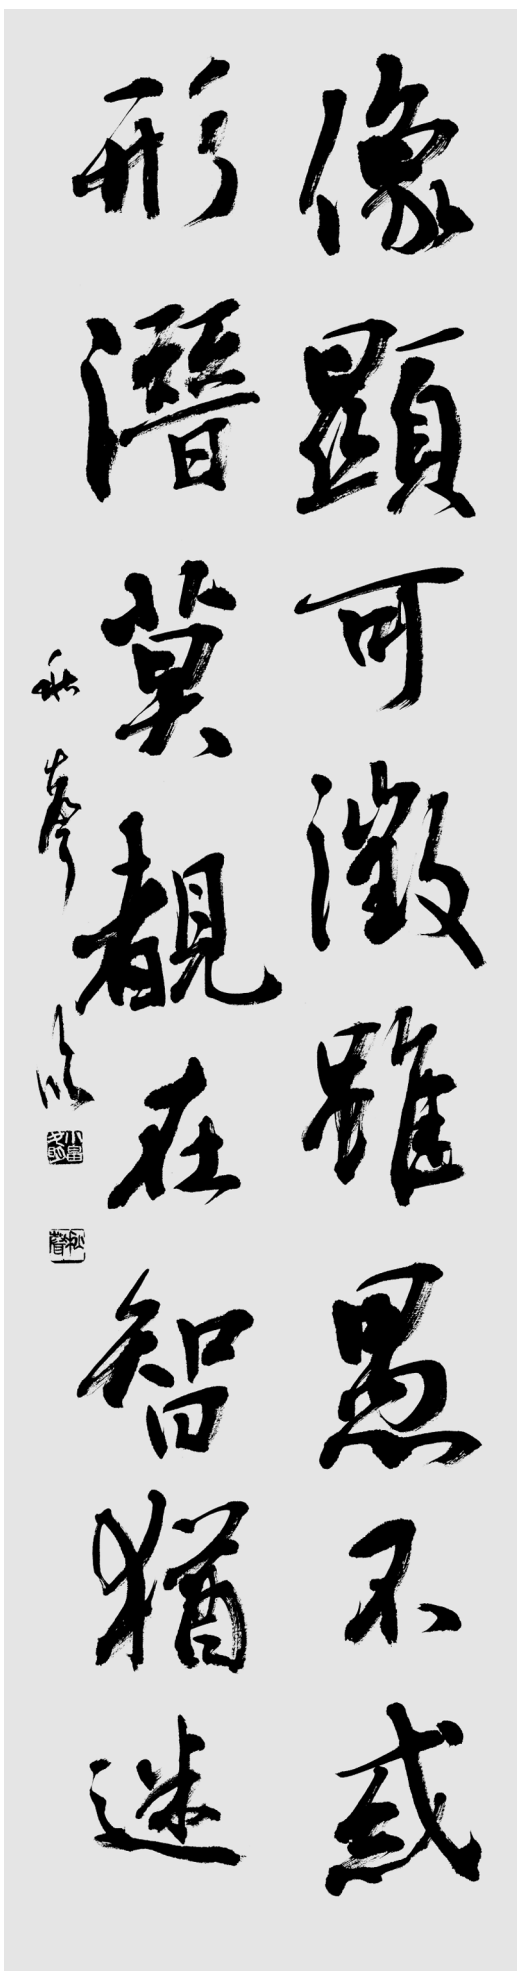 像顯可徵雖愚不惑
形潛莫覩在智猶迷
秋聲臨